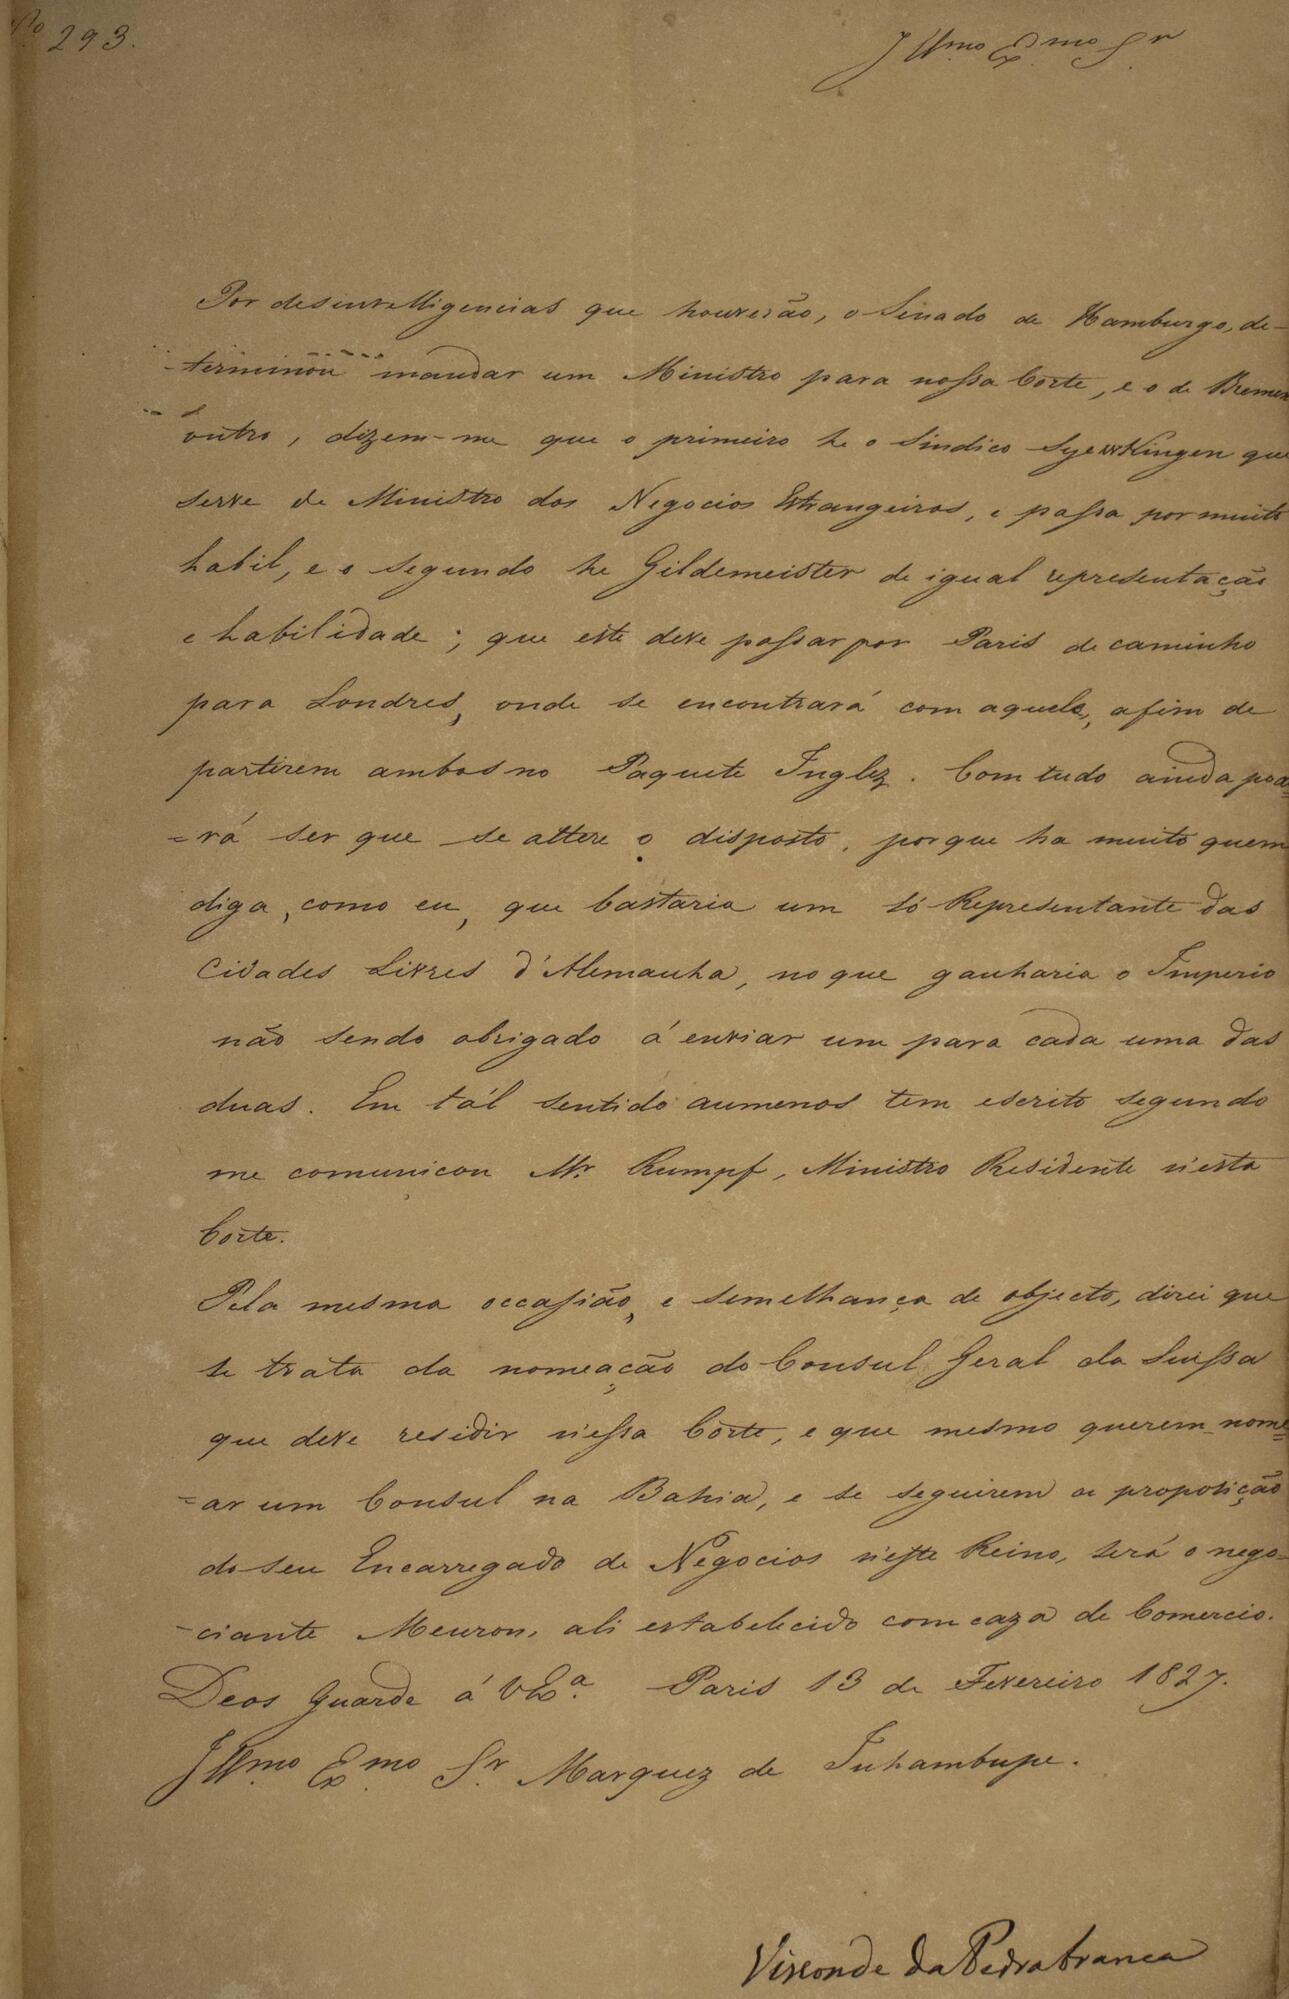 Nº 293.
Illmo Exmo Sr
Por desintelligencias que houverão, o Senado de Hamburgo, de-
-terminou mandar um Ministro para nossa Corte, e o de Bremen
outro, dizem-me que o primeiro he o Sindico Syewkingen que
serve de Ministro dos Negocios Estrangeiros, e passa por muito
habil, e o segundo he Gildemeister de igual representação
e habilidade; que este deve passar por Paris de caminho
para Londres, onde se encontrará com aquele, afim de
partirem ambos no Paquete Inglez. Com tudo ainda pode=
=rá ser que se altere o disposto, porque ha muito quem
diga, como eu, que bastaria um só Representante das
Cidades Livres d'Alemanha, no que ganharia o Imperio
não sendo obrigado á enviar um para cada uma das
duas. Em tál sentido aumenos tem escrito segundo
me comunicou Mr. Rumpf, Ministro Residente n'esta
Corte.
Pela mesma occasião, e semelhança de objecto, direi que
se trata da nomeação do Consul Geral da Suissa
que deve residir n'essa Corte, e que mesmo querem nome=
=ar um Consul na Bahia, e se seguirem a proposição
do seu Encarregado de Negocios n'este Reino, será o nego-
-ciante Meuron, ali estabelecido com caza de Comercio.
Deos Guarde á VExa. Paris 13 de Fevereiro 1827.
Illmo Exmo Sr. Marquez de Inhambupe.
Visconde da Pedra branca